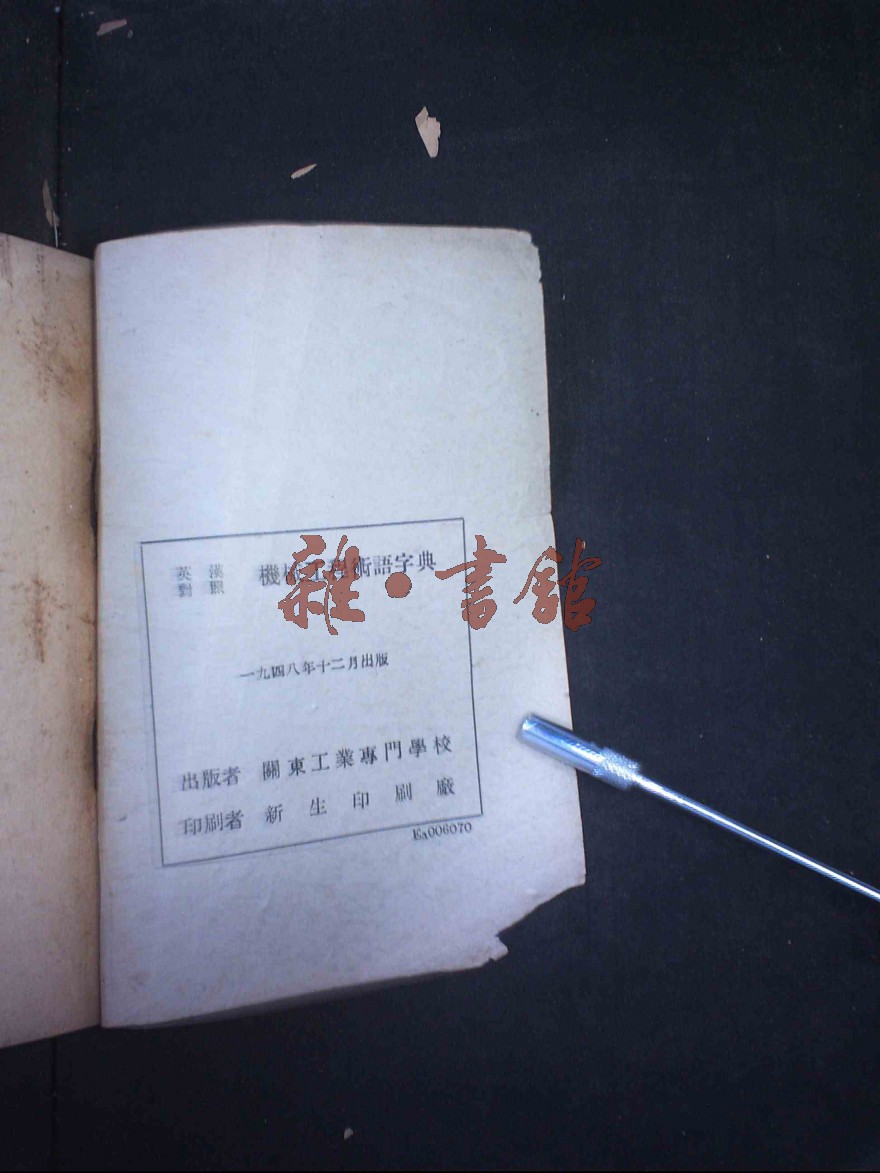 英漢對照 機械工程術語字典
雜·書館
一九四八年十二月出版
出版者 關東工業專門學校
印刷者 新生印刷廠
Ea006070